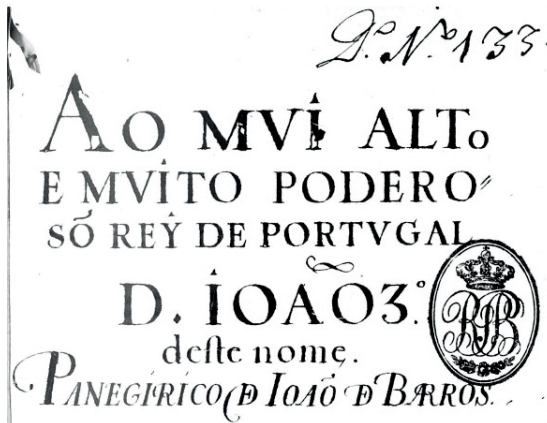 D.º N.º 133
AO MVI ALTo
E MVITO PODERO⸗
SÕ REY DE PORTVGAL
D. IOAÕ 3.º
deste nome.
PANEGIRICO DE IOAÕ DE BARROS.